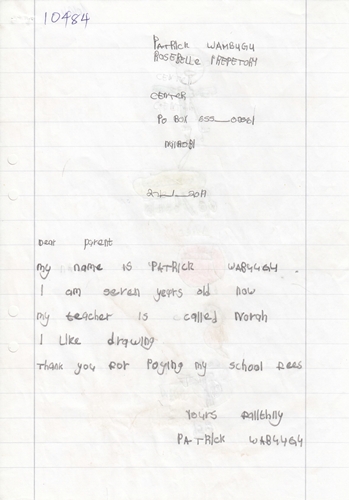 10484
PATRICK WAMBUGU
ROSEBELLE PREPETORY
CENTER
PO BOX 655 __ 00061
NAIROBI
Dear parent
my name is PATRICK WABUUGU
I am seven years old now
my teacher is called Norah
I Like drawing
Thank you for Paying my school fees
yours faithfuly
PATRICK WABUUGU